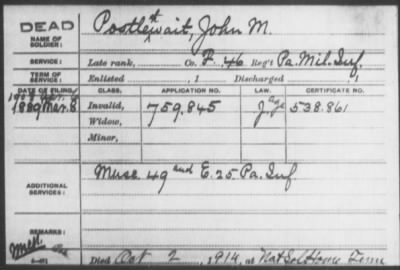 DEAD
NAME OF SOLDIER:
Postlethwait, John M.
SERVICE: Late rank, Co. F. 46 Reg't Pa. Mil. Inf.
TERM OF SERVICE: Enlisted , 1 Discharged , 1
DATE OF FILING. CLASS. APPLICATION NO. LAW. CERTIFICATE NO.
1889 Mar. 8 Invalid, 759.845 538.861
Widow,
Minor,
ADDITIONAL SERVICES: Musc 49 and E. 25 Pa. Inf
REMARKS:
Died Oct 2, 1914, at Nat Sol Home Tenn